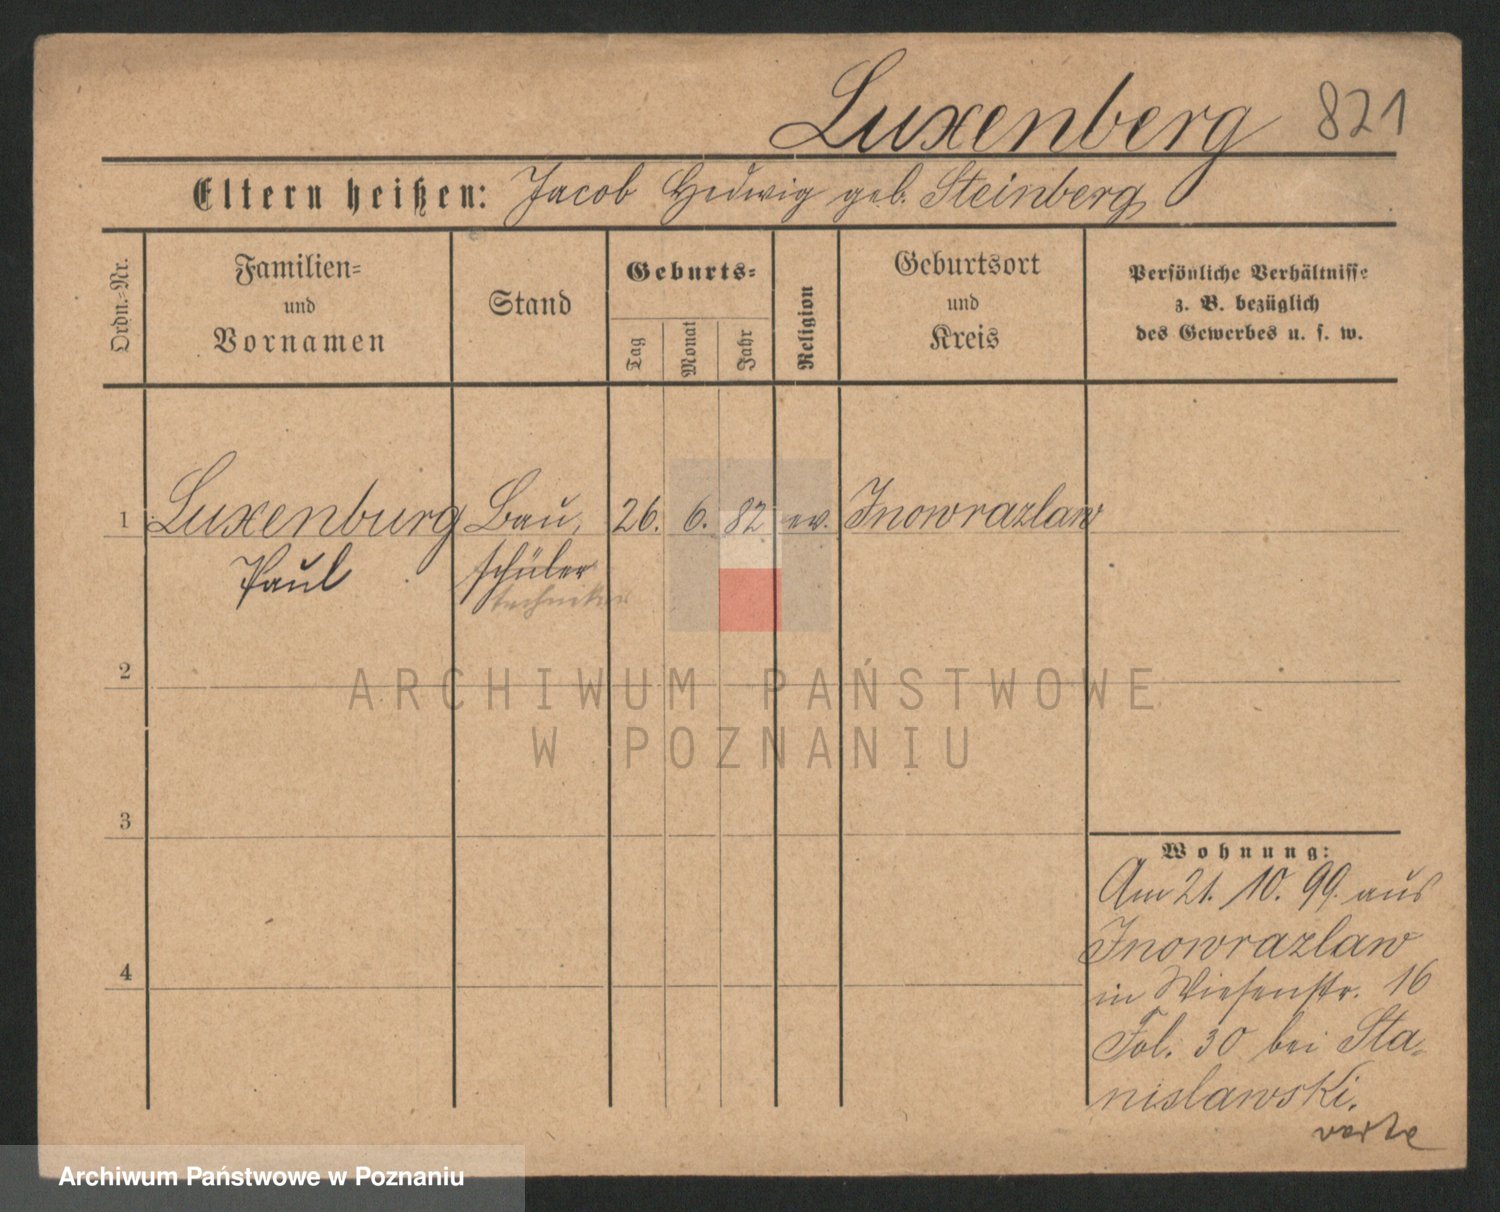 Luxenberg 821
Eltern heißen: Jacob Hedwig geb. Steinberg
Ordn.=Nr.
Familien=
und
Vornamen
Stand
Geburts=
Tag
Monat
Jahr
Religion
Geburtsort
und
Kreis
Persönliche Verhältnisse
z. B. bezüglich
des Gewerbes u. s. w.
1 Luxenburg Bau, 26. 6. 82 ev. Inowrazlaw
Paul schüler
techniker
2
ARCHIWUM PAŃSTWOWE
W POZNANIU
3
Wohnung:
Am 21. 10. 99. aus
Inowrazlaw
4
in Wiesenstr. 16
Fol. 30 bei Sta,
nislawski.
verte
Archiwum Państwowe w Poznaniu